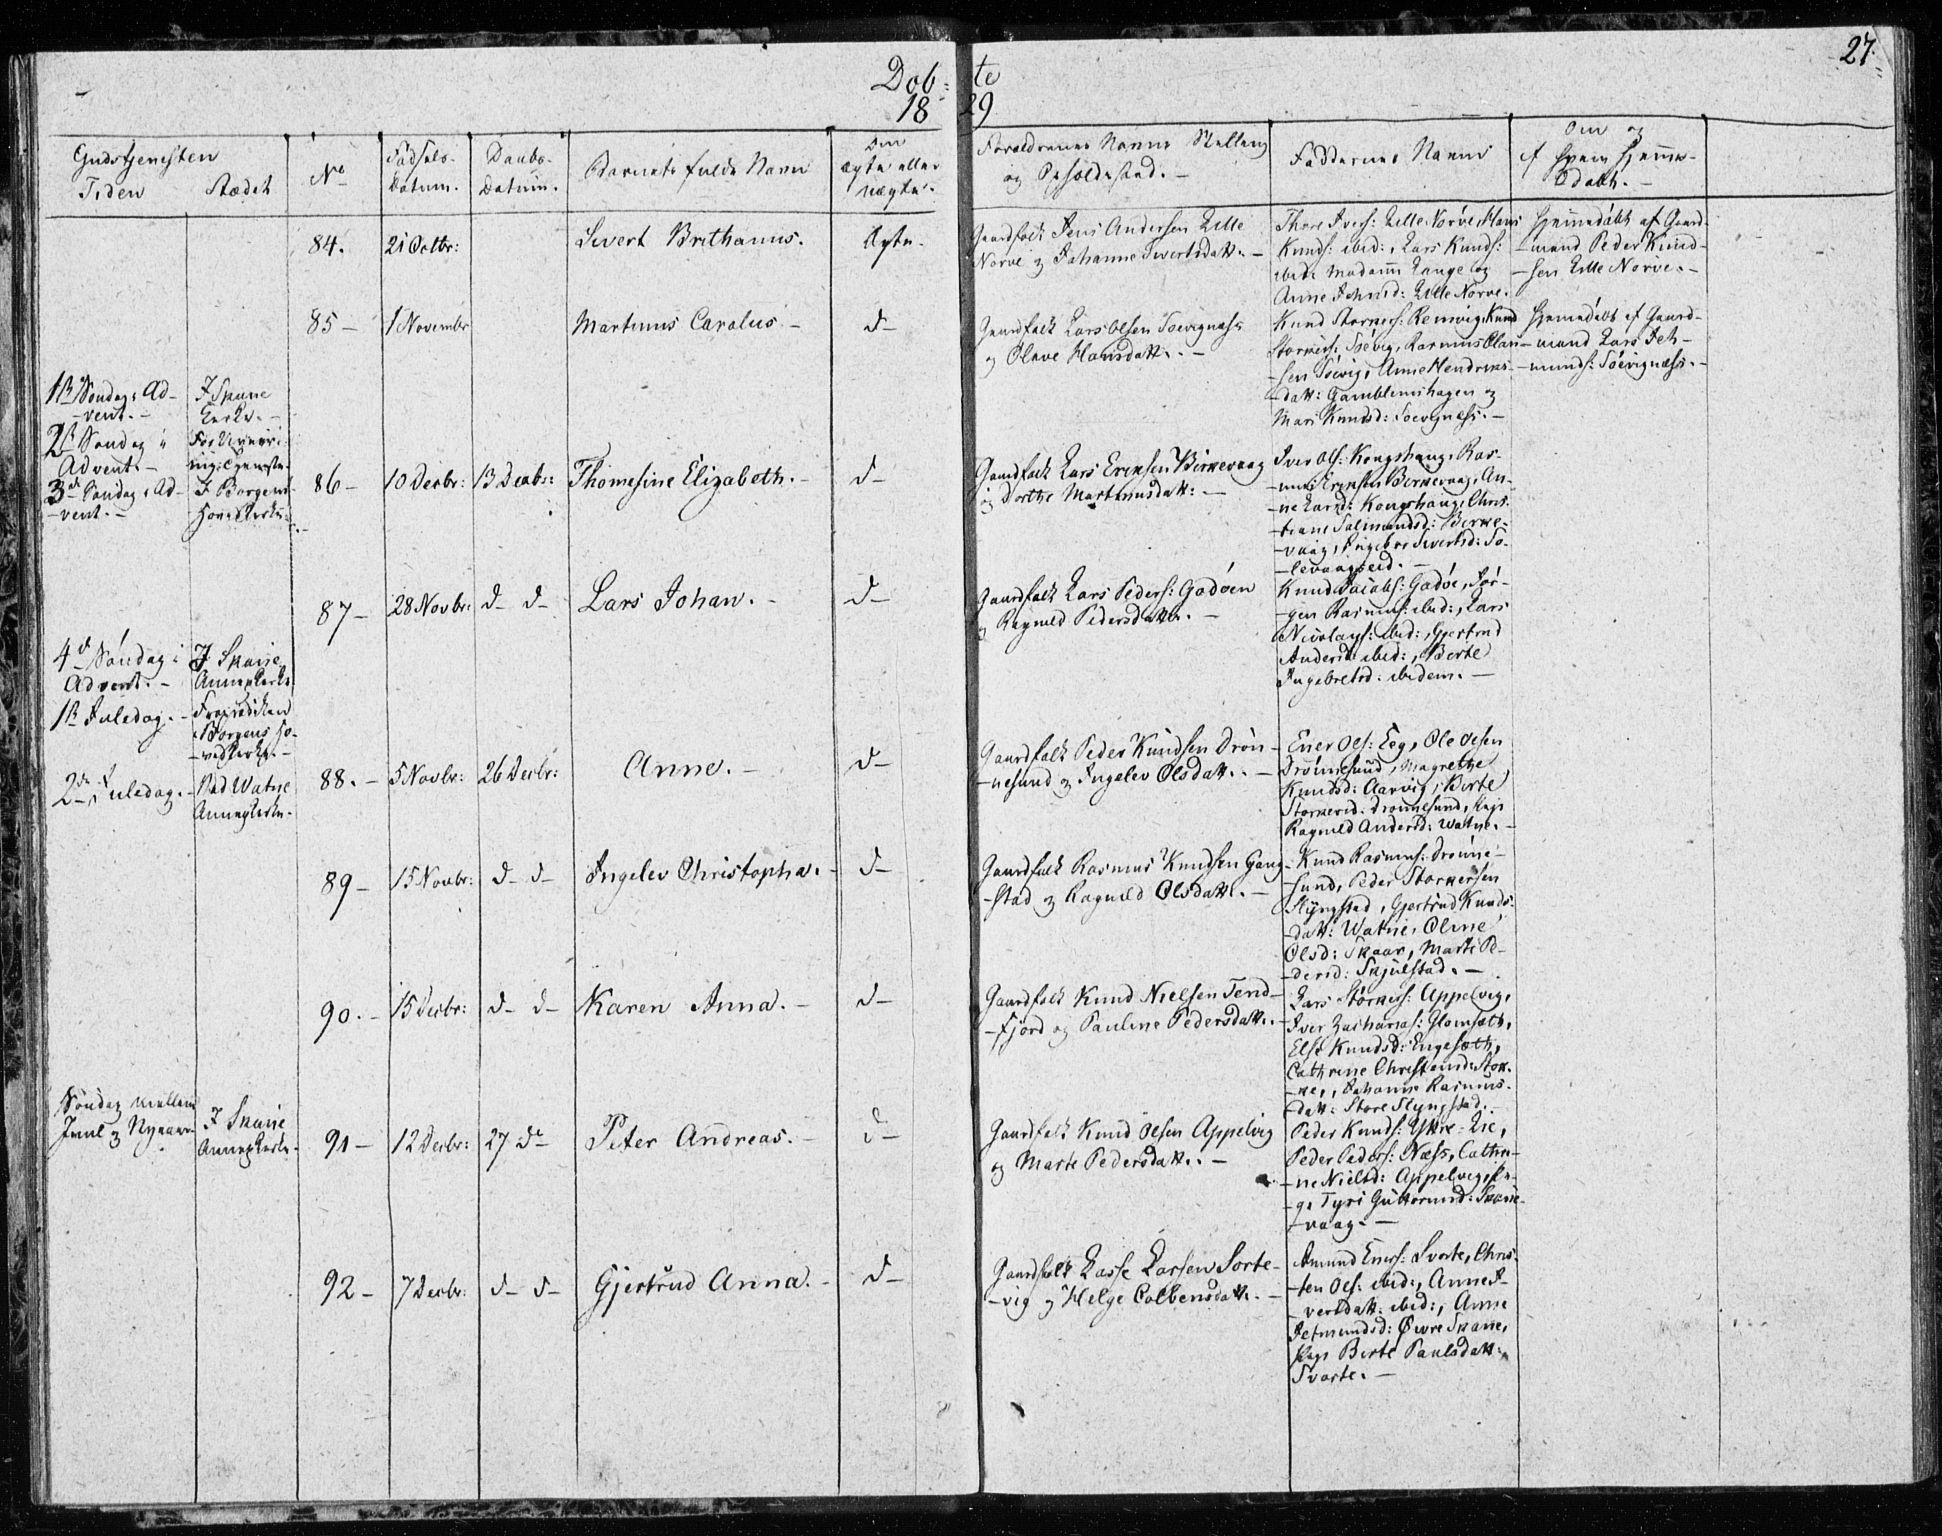 Døb-te
1829
27.
Gudstjenesten
Tiden Stædet
No
Fødsels-
Datum.
Daabs-
Datum.
Barnets fulde Navn
Om
ægte eller
uægte.
Forældrenes Navne Stilling
og Opholdsted. -
Faddernes Navne
Om og
af hvem Hjemme-
Døbt. -
84.
21 Octbr:
Sivert Brithanus.
Ægte.
Gaardfolk Jens Andersen Lille
Norve og Johanne Sivertsdatt. -
Thore Ivers: Lille Norve, Hans
Knuds: ibid:, Lars Knuds:
ibid: Madam Lange og
Anne Lille Norve.
Hjemmedøbt af Gaard-
-mand Peder Knud-
-sen Lille Norve. -
85 -
1 Novembr
Martinus Carolus. -
d-
Gaardfolk Lars Olsen Soevignæss
og Olave Hansdatt. -
Knud Storkers: Remvig, Knud
Storkers: Soevig, Rasmus Clau-
-sen Soevig, Anne Hendriks-
-datt: Gamblemshagen og
Mari Knudsd: Soevignæss. -
Hjemmedøbt af Gaard-
-mand Lars Jet-
-munds: Soevignæss. -
1ste Søndag i Ad-
-vent. -
I Skaue
Kirke. -
2den Søndag i
Advent. -
3die Søndag i Ad-
-vent. -
I Borgund
Hovedkirke. -
86 -
10 Decbr:
13 Decbr:
Thomesine Elizabeth. -
d-
Gaardfolk Lars Ericksen Birkevaag
og Dorthe Martinusdatt: -
Iver Ols: Kongshaug, Ras-
-mus Ericksen Birkevaag, An-
-ne Larsd: Kongshaug, Chris-
-tiane Salmundsd: Birke-
-vaag, Ingebor Sivertsd: So-
-levaagseid. -
87 -
28 Novbr:
d- d-
Lars Johan. -
d-
Gaardfolk Lars Peders: Godøen
og Ragnild Pedersdatt. -
Knud Jacobs: Godøe, Jør-
-gen Rasmus: ibid:, Lars
Nicolays: ibid:, Gjertrud
Andersd: ibid:, Berte
Ingebretsd: ibidem. -
4de Søndag i
Advent. -
I Skaue
Annexkirke
1ste Juledag. -
Froprædiken
i Borgens Ho-
-vedkirke. -
2den Juledag. -
Ved Watne
Annexkirke.
88. -
5 Novbr:
26 Decbr:
Anne. -
d-
Gaardfolk Peder Knudsen Drøn-
-nesund og Ingelev Olsdatt. -
Ener Ols: Eeg, Ole Olsen
Drønnesund, Magrethe
Knudsd: Aarvig, Berte
Storkersd: Drønnesund, Pige
Ragnild Andersd: Watne. -
89 -
15 Novbr:
d- d-
Ingelev Christopha. -
d-
Gaardfolk Rasmus Knudsen Gang-
-stad og Ragnild Olsdatt. -
Knud Rasmus: Drønne-
-sund, Peder Storkersen
Slyngstad, Gjertrud Knuds-
-datt: Watne, Oline
Olsd: Skaar, Marte Pe-
-dersd: Skjulstad. -
90. -
15 Decbr:
d- d-
Karen Anna. -
d-
Gaardfolk Knud Nielsen Tend-
-fjord og Pauline Pedersdatt. -
Lars Storkers: Appelvig,
Iver Zacharias: Glomsæth,
Else Knudsd: Engesæth,
Cathrine Christensd: Stor-
-ke, Johanne Rasmus-
-datt: Store Slyngstad. -
Søndag mellem
Juul og Nyaar. -
I Skaue
Annexkirke. -
91 -
12 Decbr:
27 de
Peter Andreas. -
d-
Gaardfolk Knud Olsen Appelvig
og Marte Pedersdatt. -
Peder Knuds: Yttre-Lie,
Peder Peders: Næss, Cathri-
-ne Nielsd: Appelvig, Pi-
-ge Tyri Guttormsd: Skaue-
-vaag. -
92 -
7 Decbr:
d- d-
Gjertrud Anna. -
d-
Gaardfolk Lasse Larsen Sorte-
-vig og Helge Colbensdatt. -
Amund Eners: Svorte, Chris-
-ten Ols: ibid:, Anne I-
-versdatt. ibid:, Anne
Jetmundsd: Øvre Skaue,
Pige Berte Paulsdatt:
Svorte. -